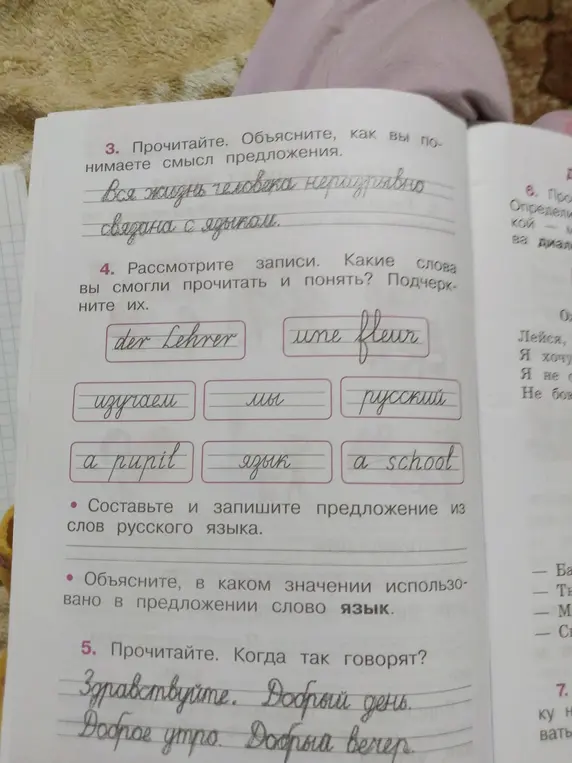 3. Прочитайте. Объясните, как вы по-
нимаете смысл предложения.
Вся жизнь человека неразрывно
связана с языком.
4. Рассмотрите записи. Какие слова
вы смогли прочитать и понять? Подчерк-
ните их.
der Lehrer une fleur
изучаем мы русский
a pupil язык a school
• Составьте и запишите предложение из
слов русского языка.
• Объясните, в каком значении использо-
вано в предложении слово язык.
5. Прочитайте. Когда так говорят?
Здравствуйте. Добрый день.
Доброе утро. Добрый вечер.
6.
Определи
кой —
ва диало
Лейся,
Я хочу
Я не
Не бо
— Ба
— Т
— М
— С
7.
ку н
вать